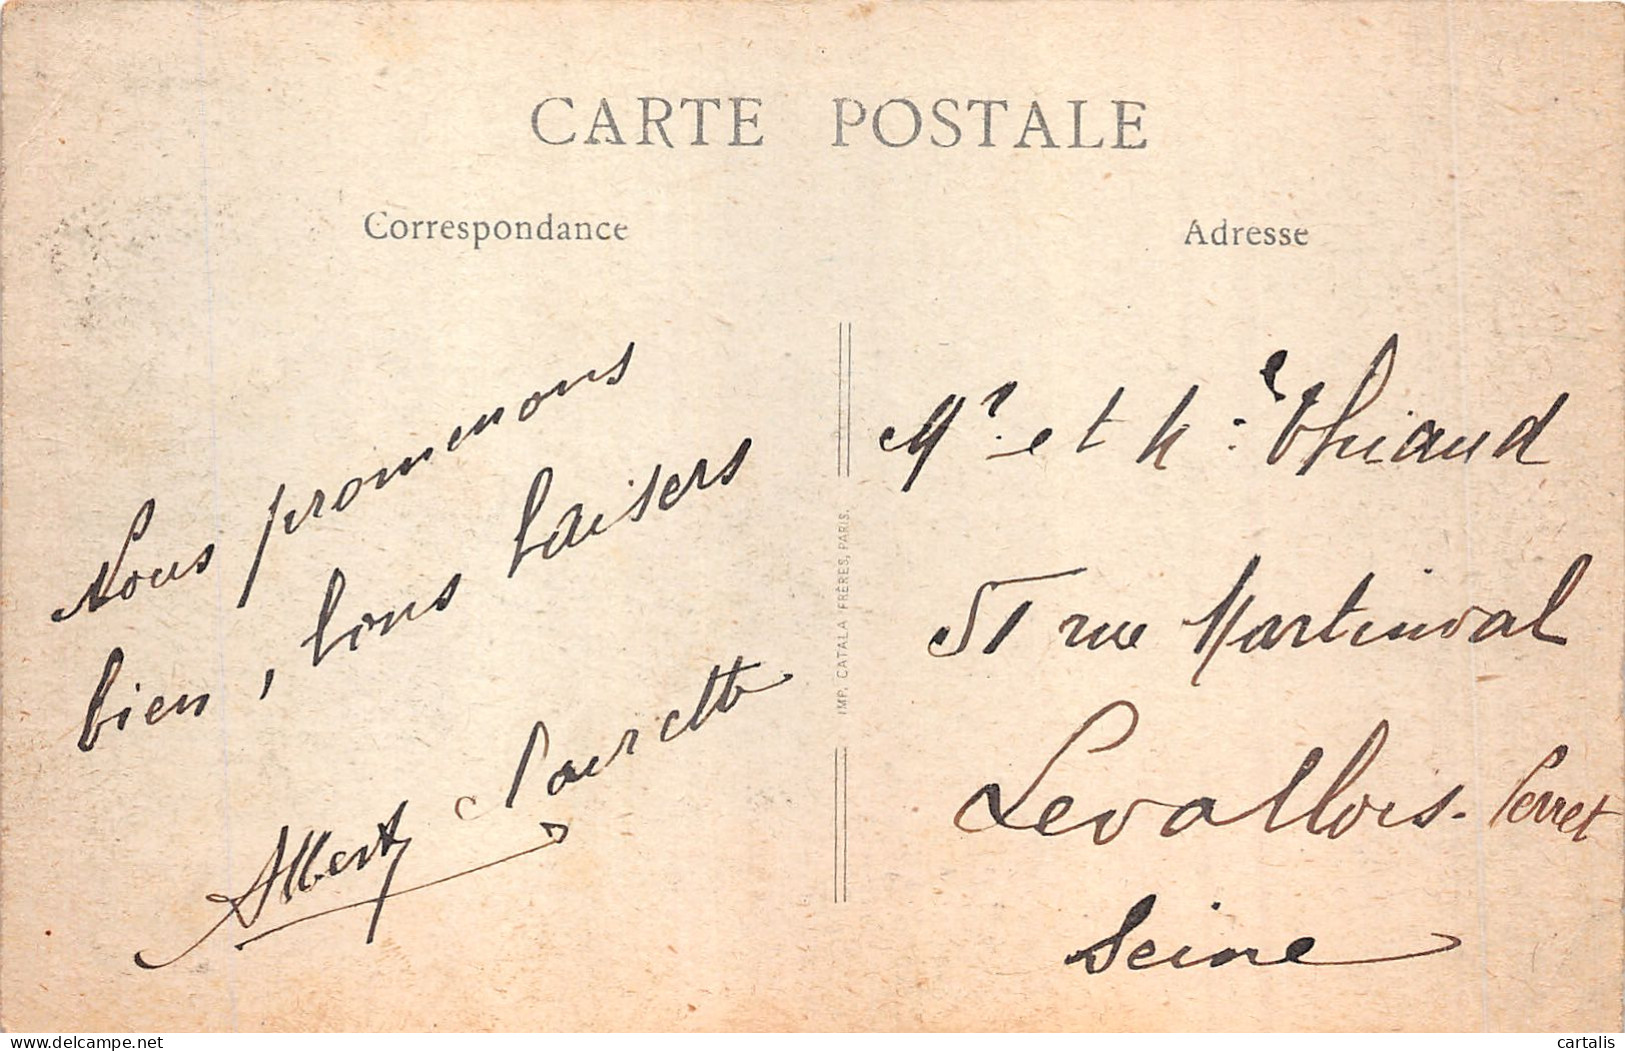 CARTE POSTALE
Correspondance
Nous promenons
bien, bons baisers
Albert Paurette
IMP. CATALA FRÈRES, PARIS.
Adresse
Mr. et Me: Thiaud
51 rue Martinval
Levallois-Perret
Seine
delcampe.net
cartalis